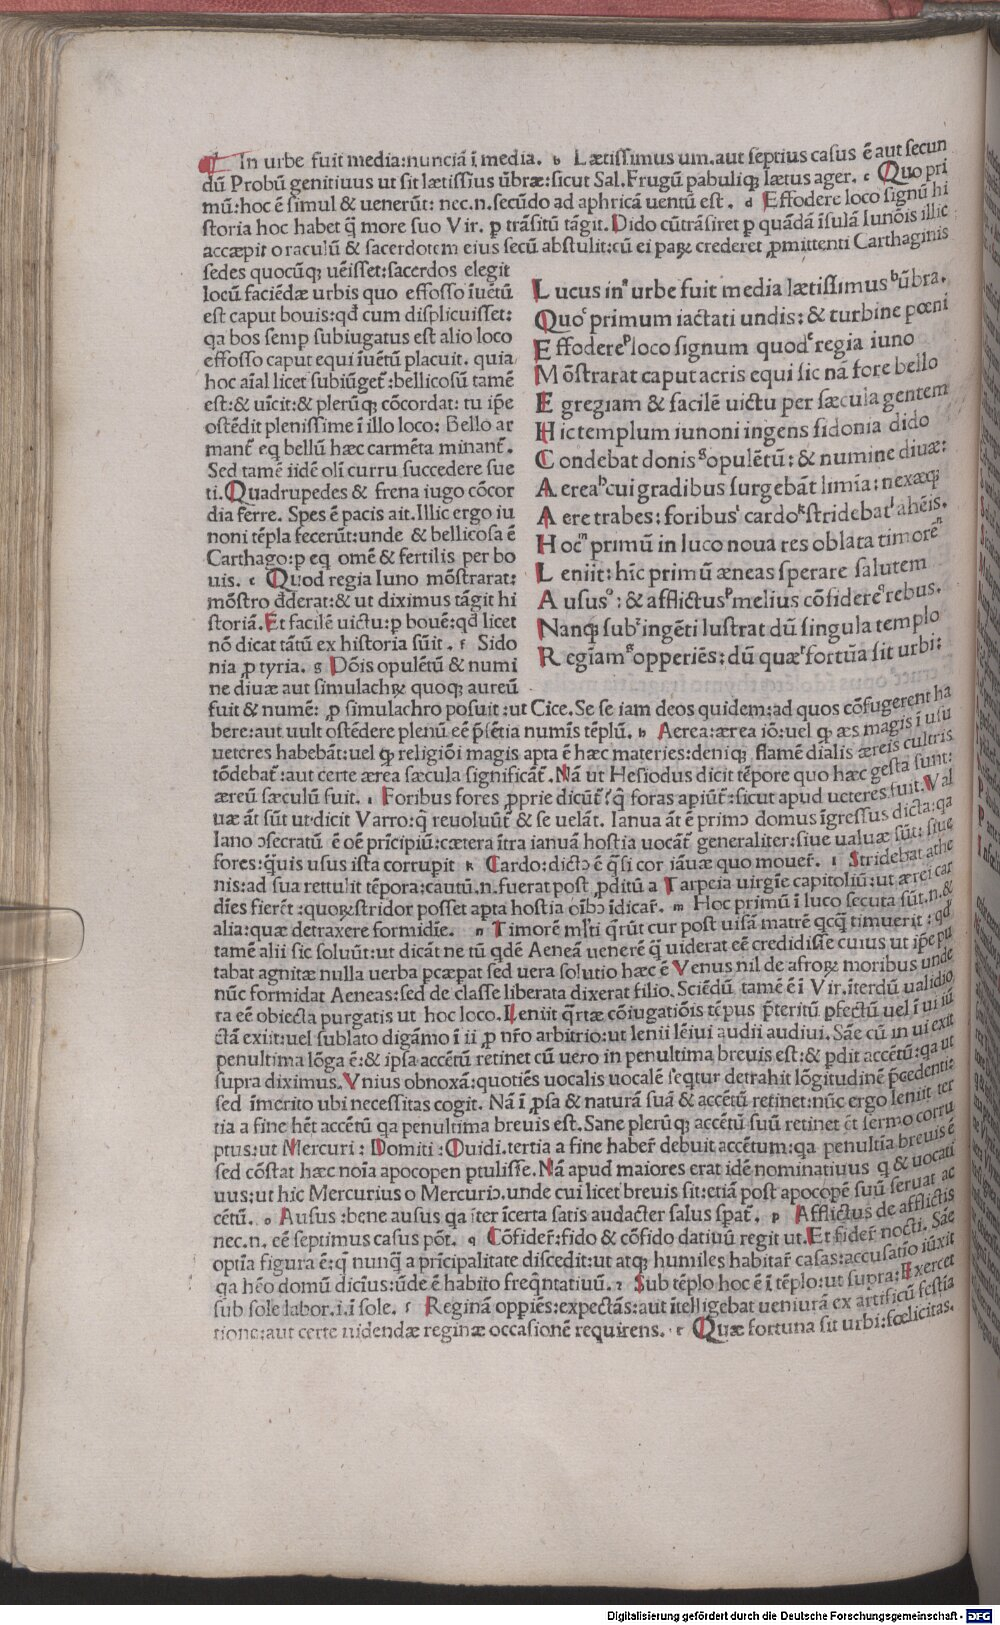 In urbe fuit media:nunciā ī media. b Lætissimus um.aut septius casus ē aut secun
dū Probū genitiuus ut sit lætissius ūbræ:sicut Sal.Frugū pabuliqꝫ lætus ager. c Quo pri
mū:hoc ē simul & uenerūt: nec.n.secūdo ad aphricā uentū est. d Effodere loco signū hi
storia hoc habet q̄ more suo Vir. ꝑ trāsitū tāgit. Dido cūtrāsiret ꝑ quādā īsulā Iunōis illic
accæpit oraculū & sacerdotem eius secū abstulit:cū ei paꝝ crederet ꝓmittenti Carthaginis
sedes quocūqꝫ uēisset:sacerdos elegit
locū faciēdæ urbis quo effosso īuētū
est caput bouis:qđ cum displicuisset:
qa bos semp subiugatus est alio loco
effosso caput equi īuētū placuit. quia
hoc aīal licet subiūget̄ :bellicosū tamē
est:& uīcit:& plerūqꝫ cōcordat: tu ip̄e
ostēdit plenissime ī illo loco: Bello ar
mant̄ eq bellū hæc carmēta minant̄.
Sed tamē iidē olī curru succedere sue
ti.Quadrupedes & frena iugo cōcor
dia ferre. Spes ē pacis ait.Illic ergo iu
noni tēpla fecerūt:unde & bellicosa ē
Carthago:p eq omē & fertilis per bo
uis. e Quod regia Iuno mōstrarat:
mōstro đderat:& ut diximus tāgit hi
storiā.Et facilē uictu:p bouē:qđ licet
nō dicat tātū ex historia sūit . f Sido
nia ꝓ tyria. g Dōis opulētū & numi
ne diuæ aut simulachꝝ quoqꝫ aureū
Lucus inᵃ urbe fuit media lætissimus ᵇūbra.
Quoᶜ primum iactati undis:& turbine pœni
Effodereᵈ loco signum quodᵉ regia iuno
Mōstrarat caput acris equi sic nā fore bello
Egregiam & facilē uictu per sæcula gentem
Hic templum iunoni ingens sidonia dido
Condebat donisᵍ opulētū:& numine diuæ:
Aereaʰ cui gradibus surgebāt limīa: nexæqꝫ
Aere trabes: foribusⁱ cardoᵏ stridebatˡ ahēis.
Hocᵐ primū in luco noua res oblata timorēⁿ
Leniit: hīc primū æneas sperare salutem
Aususᵒ: & afflictusᵖ melius cōfidere rebus.
Nanqꝫ sub ingēti lustrat dū singula templo
Regiamˢ opperiēs: dū quæᵗ fortūa sit urbi:
fuit & numē: ꝓ simulachro posuit :ut Cice. Se se iam deos quidem:ad quos cōfugerent ha
bere:aut uult ostēdere plenū eē p̄sētia numīs tēplū. h Aerea:ærea iō:uel qꝫ æs magis ī usu
ueteres habebāt:uel qꝫ religiōi magis apta ē hæc materies:deniqꝫ flamē dialis æreis cultris
tōdebat̄ :aut certe ærea sæcula significāt̄. Nā ut Hesiodus dicit tēpore quo hæc gesta sunt:
æreū sæculū fuit. i Foribus fores ꝓprie dicūt̄ q̄ foras apiūt̄ :sicut apud ueteres fuit. Val
uæ āt sūt ut dicit Varro: q̄ reuoluūt̄ & se uelāt. Ianua āt ē primꝰ domus īgressus dicta:qa
Iano ↄsecratū ē oē prīcipiū:cætera ītra ianuā hostia uocāt̄ generaliter:siue ualuæ sūt: siue
fores:q̄uis usus ista corrupit k Cardo:dictꝰ ē q̄si cor iāuæ quo mouet̄. l Stridebat athe
nis:ad sua rettulit tēpora:cautū.n.fuerat post ꝓditū a Tarpeia uirgīe capitoliū:ut ærei car
dīes fierēt :quoꝝ stridor posset apta hostia oībꝰ īdicar̄. m Hoc primū ī luco secuta sūt.n.&
alia:quæ detraxere formidīe. n Timorē ml̄ti q̄rūt cur post uisā matrē qcq̄ timuerit : qđ
tamē alii sic soluūt:ut dicāt ne tū qdē Aeneā uenerē q̄ uiderat eē credidisse cuius ut ip̄e pu
tabat agnitæ nulla uerba pcæpat sed uera solutio hæc ē Venus nil de afroꝝ moribus unde
nūc formidat Aeneas:sed de classe liberata dixerat filio. Sciēdū tamē ē ī Vir.īterdū ualidio
ra eē obiecta purgatis ut hoc loco. Leniit q̄rtæ cōiugatiōis tēpus p̄teritū pfectū uel ī ui iū
ctā exiit:uel sublato digāmo ī ii ꝓ nr̄o arbitrio:ut lenii lēiui audii audiui. Sāe cū in ui exit
penultima lōga ē:& ipsa accētū retinet cū uero in penultima breuis est:& pdit accētū:qa ut
supra diximus. Vnius obnoxā:quotiēs uocalis uocalē seqtur detrahit lōgitudinē p̄cedentis
sed īmerito ubi necessitas cogit. Nā ī ꝓsa & naturā suā & accētū retinet:nūc ergo leniit ter
tia a fine hēt accētū qa penultima breuis est. Sane plerūqꝫ accētū suū retinet et̄ sermo corru
ptus:ut Mercuri : Domiti : Ouidi.tertia a fine haber̄ debuit accētum:qa penultīa breuis ē
sed cōstat hæc noīa apocopen ptulisse. Nā apud maiores erat idē nominatiuus q & uocati
uus:ut hic Mercurius o Mercuriꝰ.unde cui licet breuis sit:etiā post apocopē suū seruat ac
cētū. o Ausus :bene ausus qa iter īcerta satis audacter salus sp̄at̄. p Afflictus de afflictis
nec.n. eē septimus casus pōt. q Cōfider̄:fido & cōfido datiuū regit ut. Et fider̄ nocti. Sāe
optīa figura ē:q̄ nunq̄ a prīcipalitate discedit:ut atqꝫ humiles habitar̄ casas:accusatio iūxit
qa hēo domū dicīus:ūde ē habito freq̄ntatiuū. r Sub tēplo hoc ē ī tēplo:ut supra: Exercet
sub sole labor.i.ī sole. s Reginā oppiēs:expectās:aut ītelligebat ueniurā ex artificū festia
tione:aut certe uidendæ reginæ occasionē requirens. t Quæ fortuna sit urbi:fœlicitas.
Digitalisierung gefördert durch die Deutsche Forschungsgemeinschaft - DFG